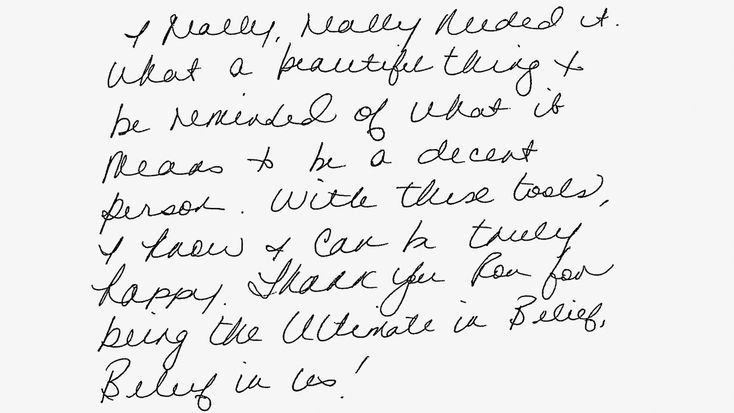 I Really, Really Needed it.
What a beautiful thing to
be reminded of what it
means to be a decent
person. With these tools,
I know I can be truly
happy. Thank you Ron for
being the Ultimate in Belief,
Belief in us!